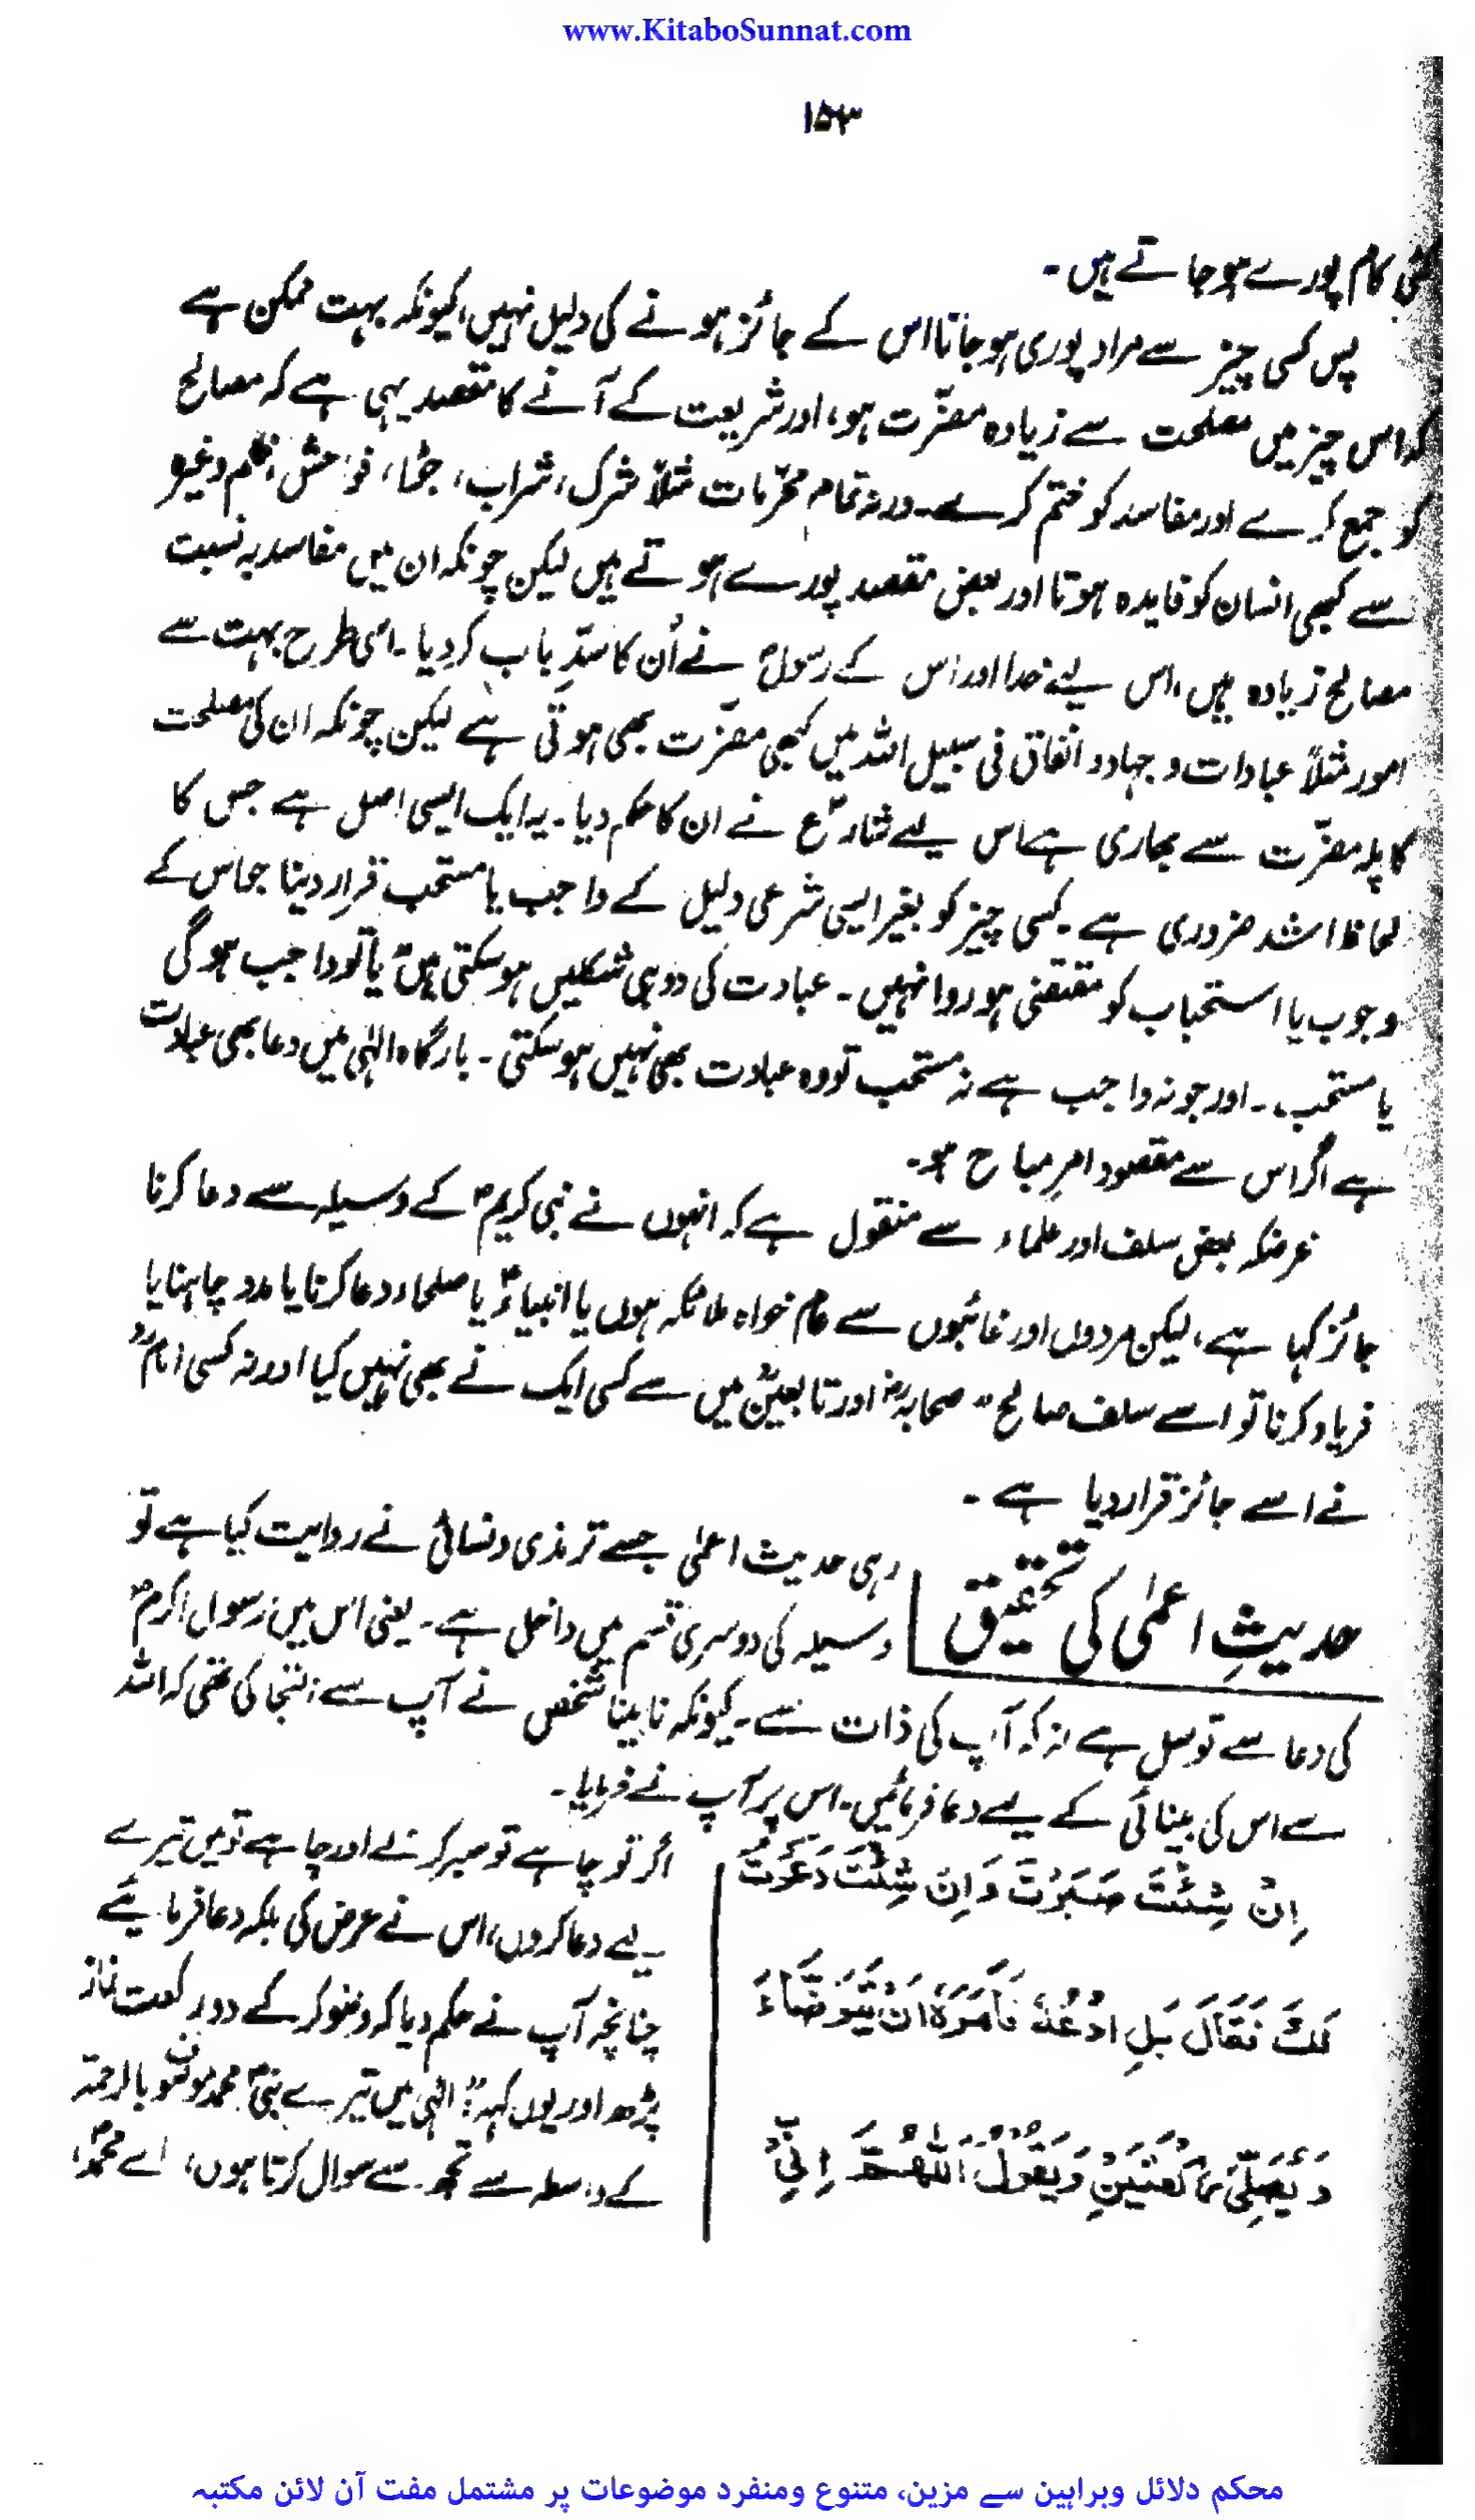 www.KitaboSunnat.com
۱۵۳
کام پورے ہو جاتے ہیں۔
پس کسی چیز سے مراد پوری ہو جانا اس کے جائز ہونے کی دلیل نہیں، کیونکہ بہت ممکن ہے
کہ اس چیز میں مصلحت سے زیادہ مضرّت ہو، اور شریعت کے آنے کا مقصد یہی ہے کہ مصالح
کو جمع کرے اور مفاسد کو ختم کرے۔ ورنہ تمام محرّمات مثلاً شرک، شراب، جُوا، فواحش، ظلم وغیرہ
سے کبھی انسان کو فایدہ ہوتا اور بعض مقصد پورے ہوتے ہیں لیکن چونکہ ان میں مفاسد بہ نسبت
مصالح زیادہ ہیں، اس لیے خدا اور اس کے رسولؐ نے اُن کا سدِّ باب کردیا۔ اسی طرح بہت سے
امور مثلاً عبادات و جہاد و انفاق فی سبیل اللہ میں کبھی مضرّت بھی ہوتی ہے لیکن چونکہ ان کی مصلحت
کا پلہ مضرّت سے بھاری ہے اس لیے شارعؑ نے ان کا حکم دیا۔ یہ ایک ایسی اصل ہے جس کا
لحاظ اشد ضروری ہے۔ کسی چیز کو بغیر ایسی شرعی دلیل کے واجب یا مستحب قرار دینا جو اس کے
وجوب یا استحباب کو مقتضی ہو روا نہیں۔ عبادت کی دو ہی شکلیں ہو سکتی ہیں یا تو واجب ہوگی
یا مستحب۔ اور جو نہ واجب ہے نہ مستحب تو وہ عبادت بھی نہیں ہو سکتی۔ بارگاہ الٰہی میں دعا بھی عبادت
ہے اگر اس سے مقصود امرِ مباح ہو۔
غرضکہ بعض سلف اور علماء سے منقول ہے کہ انہوں نے نبی کریمؐ کے وسیلہ سے دعا کرنا
جائز کہا ہے، لیکن مردوں اور غائبوں سے عام خواہ ملائکہ ہوں یا انبیاءؑ یا صلحاء دعا کرنا یا مدد چاہنا یا
فریاد کرنا تو اسے سلف صالحؒ صحابہؓ اور تابعینؒ میں سے کسی ایک نے بھی نہیں کیا اور نہ کسی امامؒ
نے اسے جائز قرار دیا ہے۔
حدیثِ اعمٰی کی تحقیق
رہی حدیث اعمٰی جسے ترمذی و نسائی نے روایت کیا ہے تو
وسیلہ کی دوسری قسم میں داخل ہے۔ یعنی اس میں رسول اکرمؐ
کی دعا سے توسل ہے نہ کہ آپ کی ذات سے۔ کیونکہ نابینا شخص نے آپ سے التجا کی تھی کہ اللہ
سے اس کی بینائی کے لیے دعا فرمائیں۔ اس پر آپ نے فرمایا۔
اِنْ شِئْتَ صَبَرْتَ وَاِنْ شِئْتَ دَعَوْتُ
لَكَ فَقَالَ بَلِ ادْعُهُ فَاَمَرَهُ اَنْ يَّتَوَضَّاءَ
وَيُصَلِّيَ رَكْعَتَيْنِ وَيَقُوْلُ اَللّٰهُمَّ اِنِّيْ
اگر تو چاہے تو صبر کرلے اور چاہے تو میں تیرے
لیے دعا کروں، اس نے عرض کی بلکہ دعا فرمایئے
چنانچہ آپ نے حکم دیا کہ وضو کر کے دو رکعت نماز
پڑھ اور یوں کہہ: الٰہی میں تیرے نبیؐ محمد موصوف بالرحمۃ
کے واسطہ سے تجھ سے سوال کرتا ہوں، اے محمدؐ،
محکم دلائل وبراہین سے مزین، متنوع ومنفرد موضوعات پر مشتمل مفت آن لائن مکتبہ